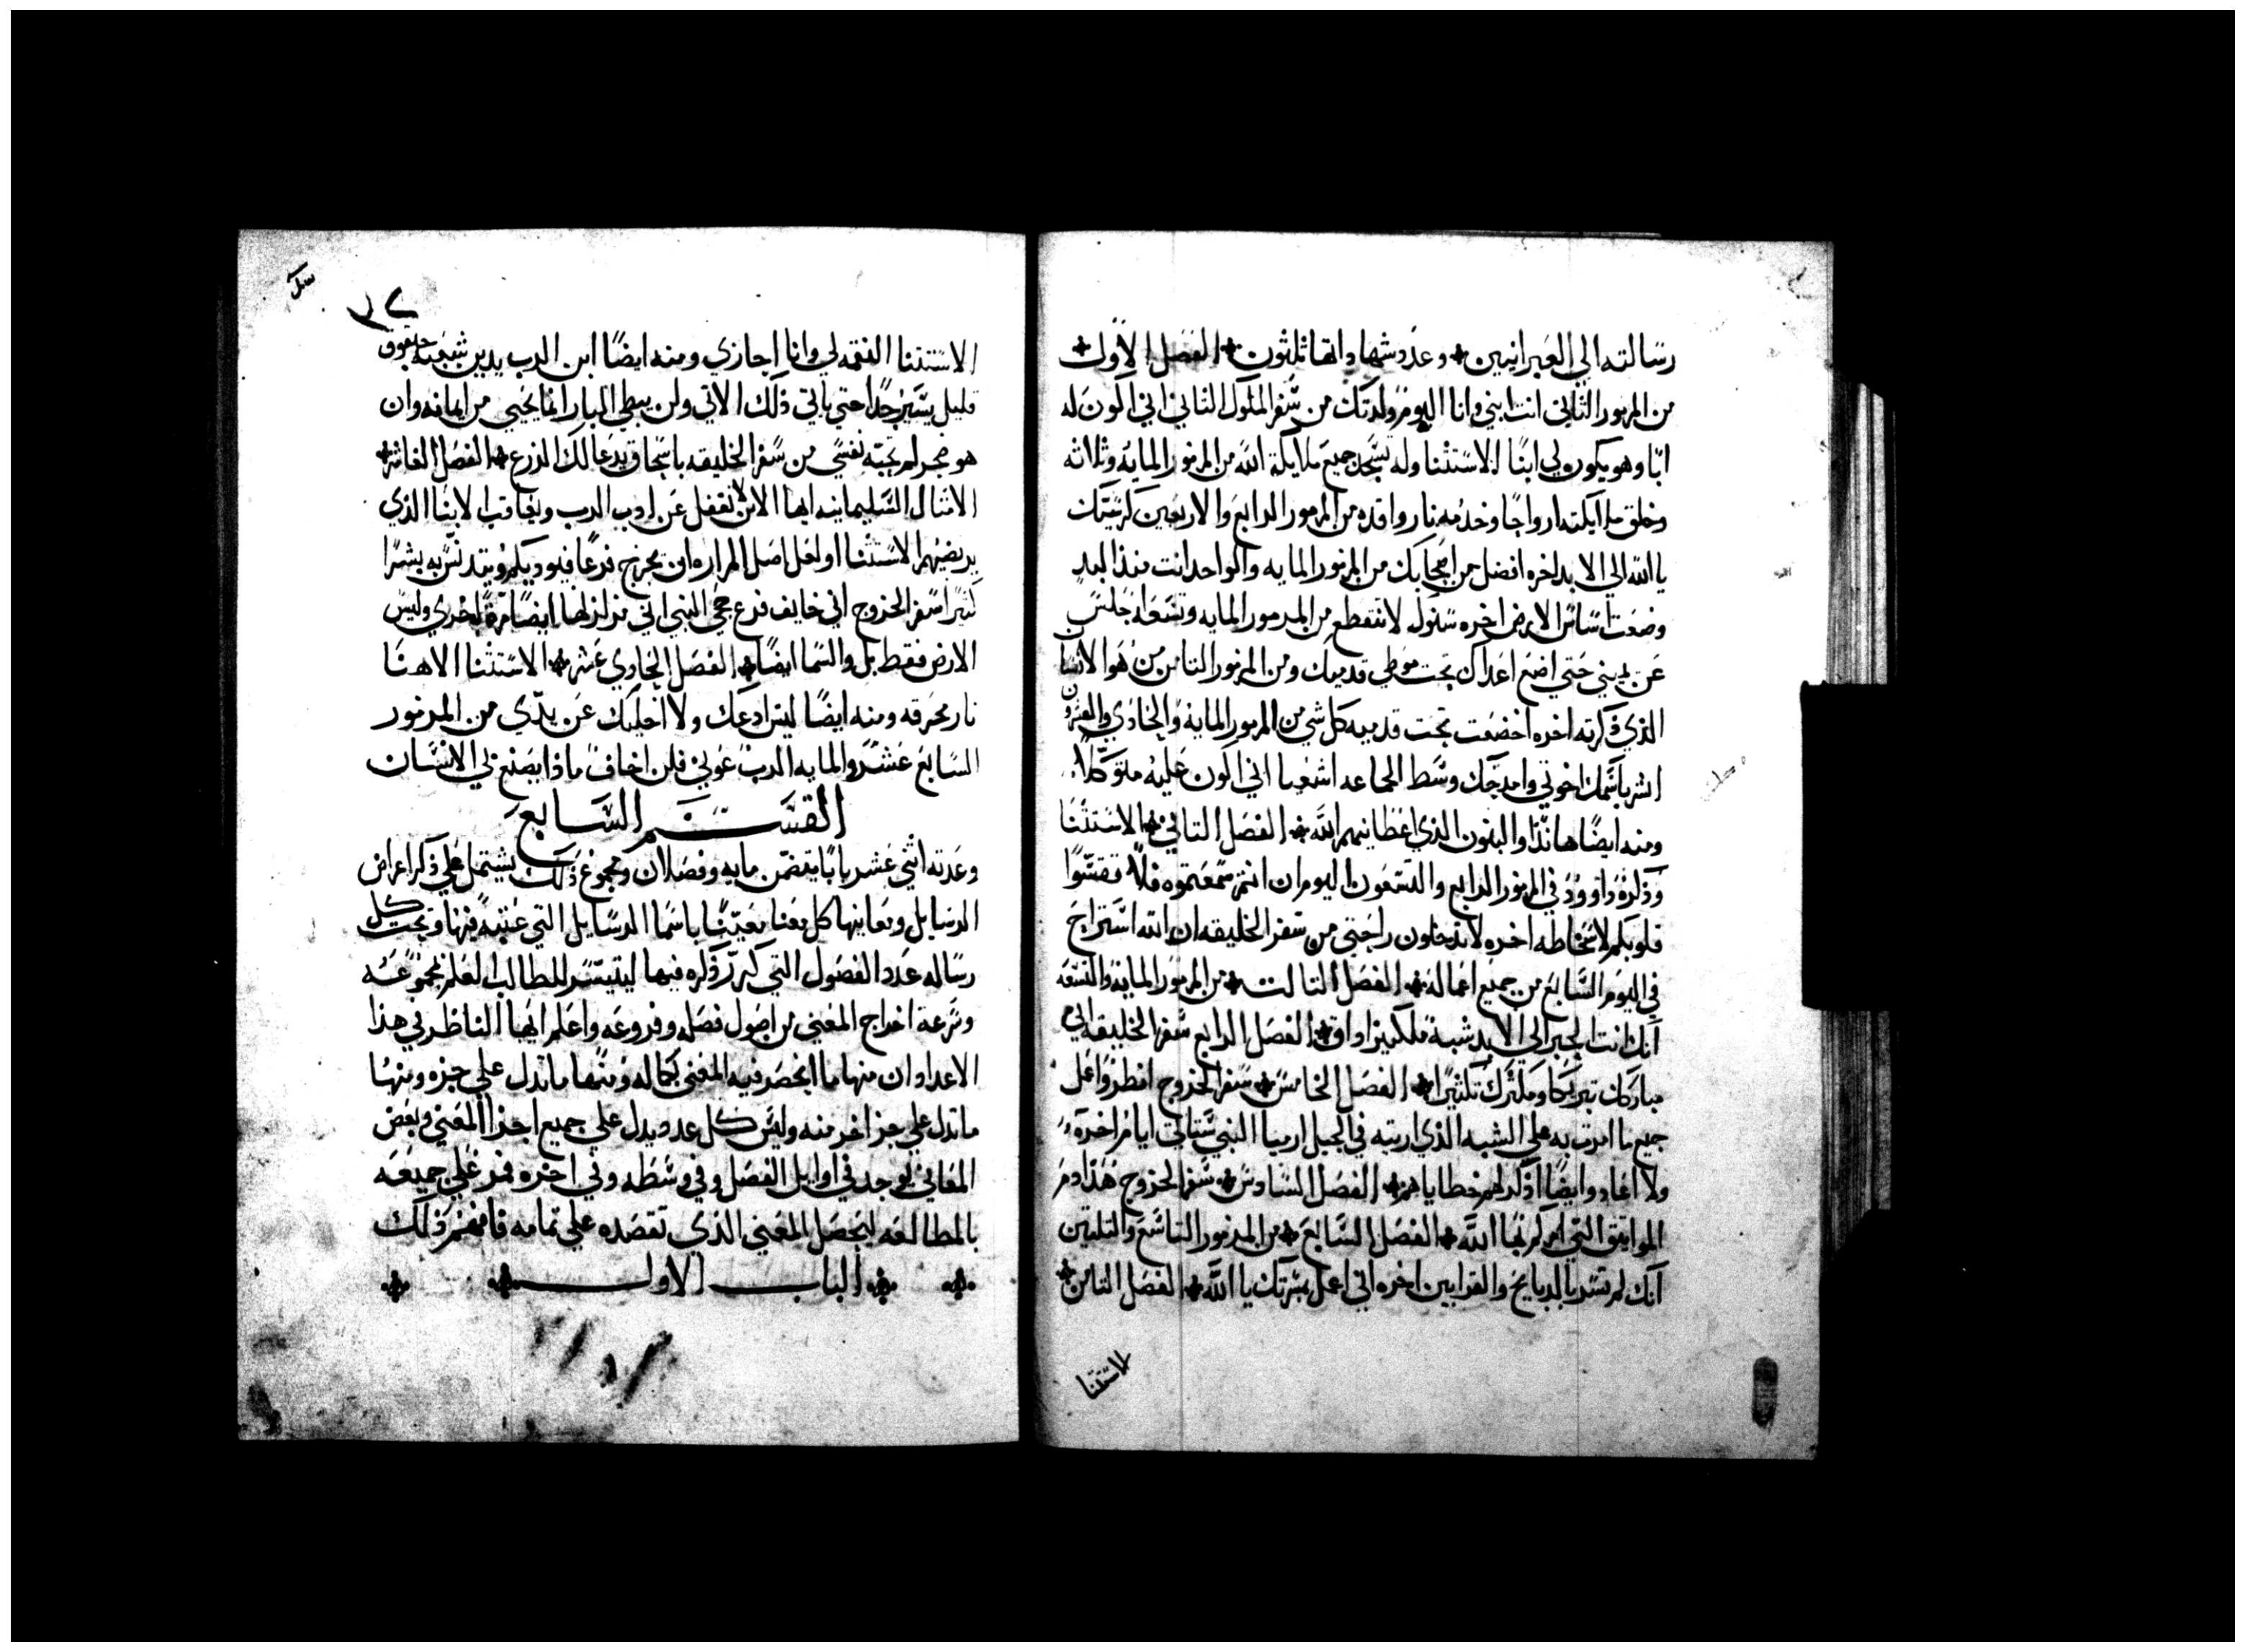 رسالته الي العبرانيين وعدد شهاداتها ثلثون الفصل الاول
من المزمور الثاني انت ابني وانا اليوم ولدتك من سفر الملوك الثاني اني اكون له
ابًا وهو يكون لي ابنًا الاستثنا وله تسجد جميع ملايكة الله من المزمور المايه وثلاثه
وخلق ملايكته ارواحًا وخدمه نار واقده من المزمور الرابع والاربعين كرسيك
يا الله الي الابد اخره افضل من اصحابك من المزمور المايه والواحد انت منذ البدي
وضعت اساس الارض اخره سنوك لا تنقطع من المزمور المايه وتسعه اجلس
عن يميني حتي اضع اعداك تحت موطي قدميك ومن المزمور الثامن من هو الانسان
الذي ذكرته اخره اخضعت تحت قدميه كل شي من المزمور المايه والحادي والعشرون
ابشر باسمك اخوتي وامدحك وسط الجماعه اشعيا اني اكون عليه متوكلاً
ومنه ايضًا هانذا والبنون الذي اعطانيهم الله الفصل الثاني الاستثنا
وذكره داوود في المزمور الرابع والتسعون اليوم ان انتم سمعتموه فلا تقسوا
قلوبكم لاسخاطه اخره لا تدخلون راحتي من سفر الخليقه ان الله استراح
في اليوم السابع من جميع اعماله الفصل الثالت من المزمور المايه والتسعه
انك انت الحبر الي الابد شبه ملكيزاداق الفصل الرابع سفر الخليقه اني
مباركك تبريكا ومكثرك تكثيرًا الفصل الخامس سفر الخروج انظر واعمل
جميع ما امرت به علي الشبه الذي اريته في الجبل ارميا النبي ستاتي ايام اخره
ولا اعاود ايضًا اذكر لهم خطاياهم الفصل السادس سفر الخروج هذا دم
المواثيق التي امركم بها الله الفصل السابع من المزمور التاسع والثلثين
انك لم تسر بالدبايح والقرابين اخره اني اعمل مسرتك يا الله الفصل الثامن
الاستثنا
٣٧
الاستثنا النقمه لي وانا اجازي ومنه ايضًا ان الرب يدين شعبه حبقوق
قليل يسير جدًا حتي ياتي ذلك الاتي ولن يبطي البار انما يحيي من ايمانه وان
هو ضجر لم تحبه نفسي من سفر الخليقه باسحاق يدعا لك الزرع الفصل العاشر
الامثال السليمانيه ايها الابن لا تغفل عن ادب الرب ويعاقب الابنا الذي
يرتضيهم الاستثنا او لعل اصل المراره ان يخرج فرعًا فيوديكم ويتدنس به بشرًا
كثيرًا سفر الخروج اني خايف فزع حجي النبي اني مزلزلها ايضًا مرة اخري وليس
الارض فقط بل والسما ايضًا الفصل الحادي عشر الاستثنا الاهنا
نار محرقه ومنه ايضًا ليس ادعك ولا اخليك عن يدي من المزمور
السابع عشر والمايه الرب عوني فلن اخاف ماذا يصنع بي الانسان
القسم السابع
وعدته اثني عشر بابًا يتضمن مايه وفصلان ومجموع ذلك يشتمل علي ذكر اعراض
الرسايل ومعانيها كل معنا معينًا باسما الرسايل التي عنيه فيها وتحت كل
رساله عدد الفصول التي كرر ذكره فيها ليتيسر للطالب العلم بمجموعه
وسرعة اخراج المعني من اصول فصله وفروعه واعلم ايها الناظر في هذا
الاعداد ان منها ما انحصر فيه المعني بكماله ومنها ما تدل علي جزه ومنها
ما تدل علي جز اخر منه وليس كل عدد يدل علي جميع اجزا المعني وبعض
المعاني يوجد في اوايل الفصل وفي وسطه وفي اخره فمر علي جميعه
بالمطالعه ليحصل المعني الذي تقصده علي تمامه فافهم ذلك
الباب الاول